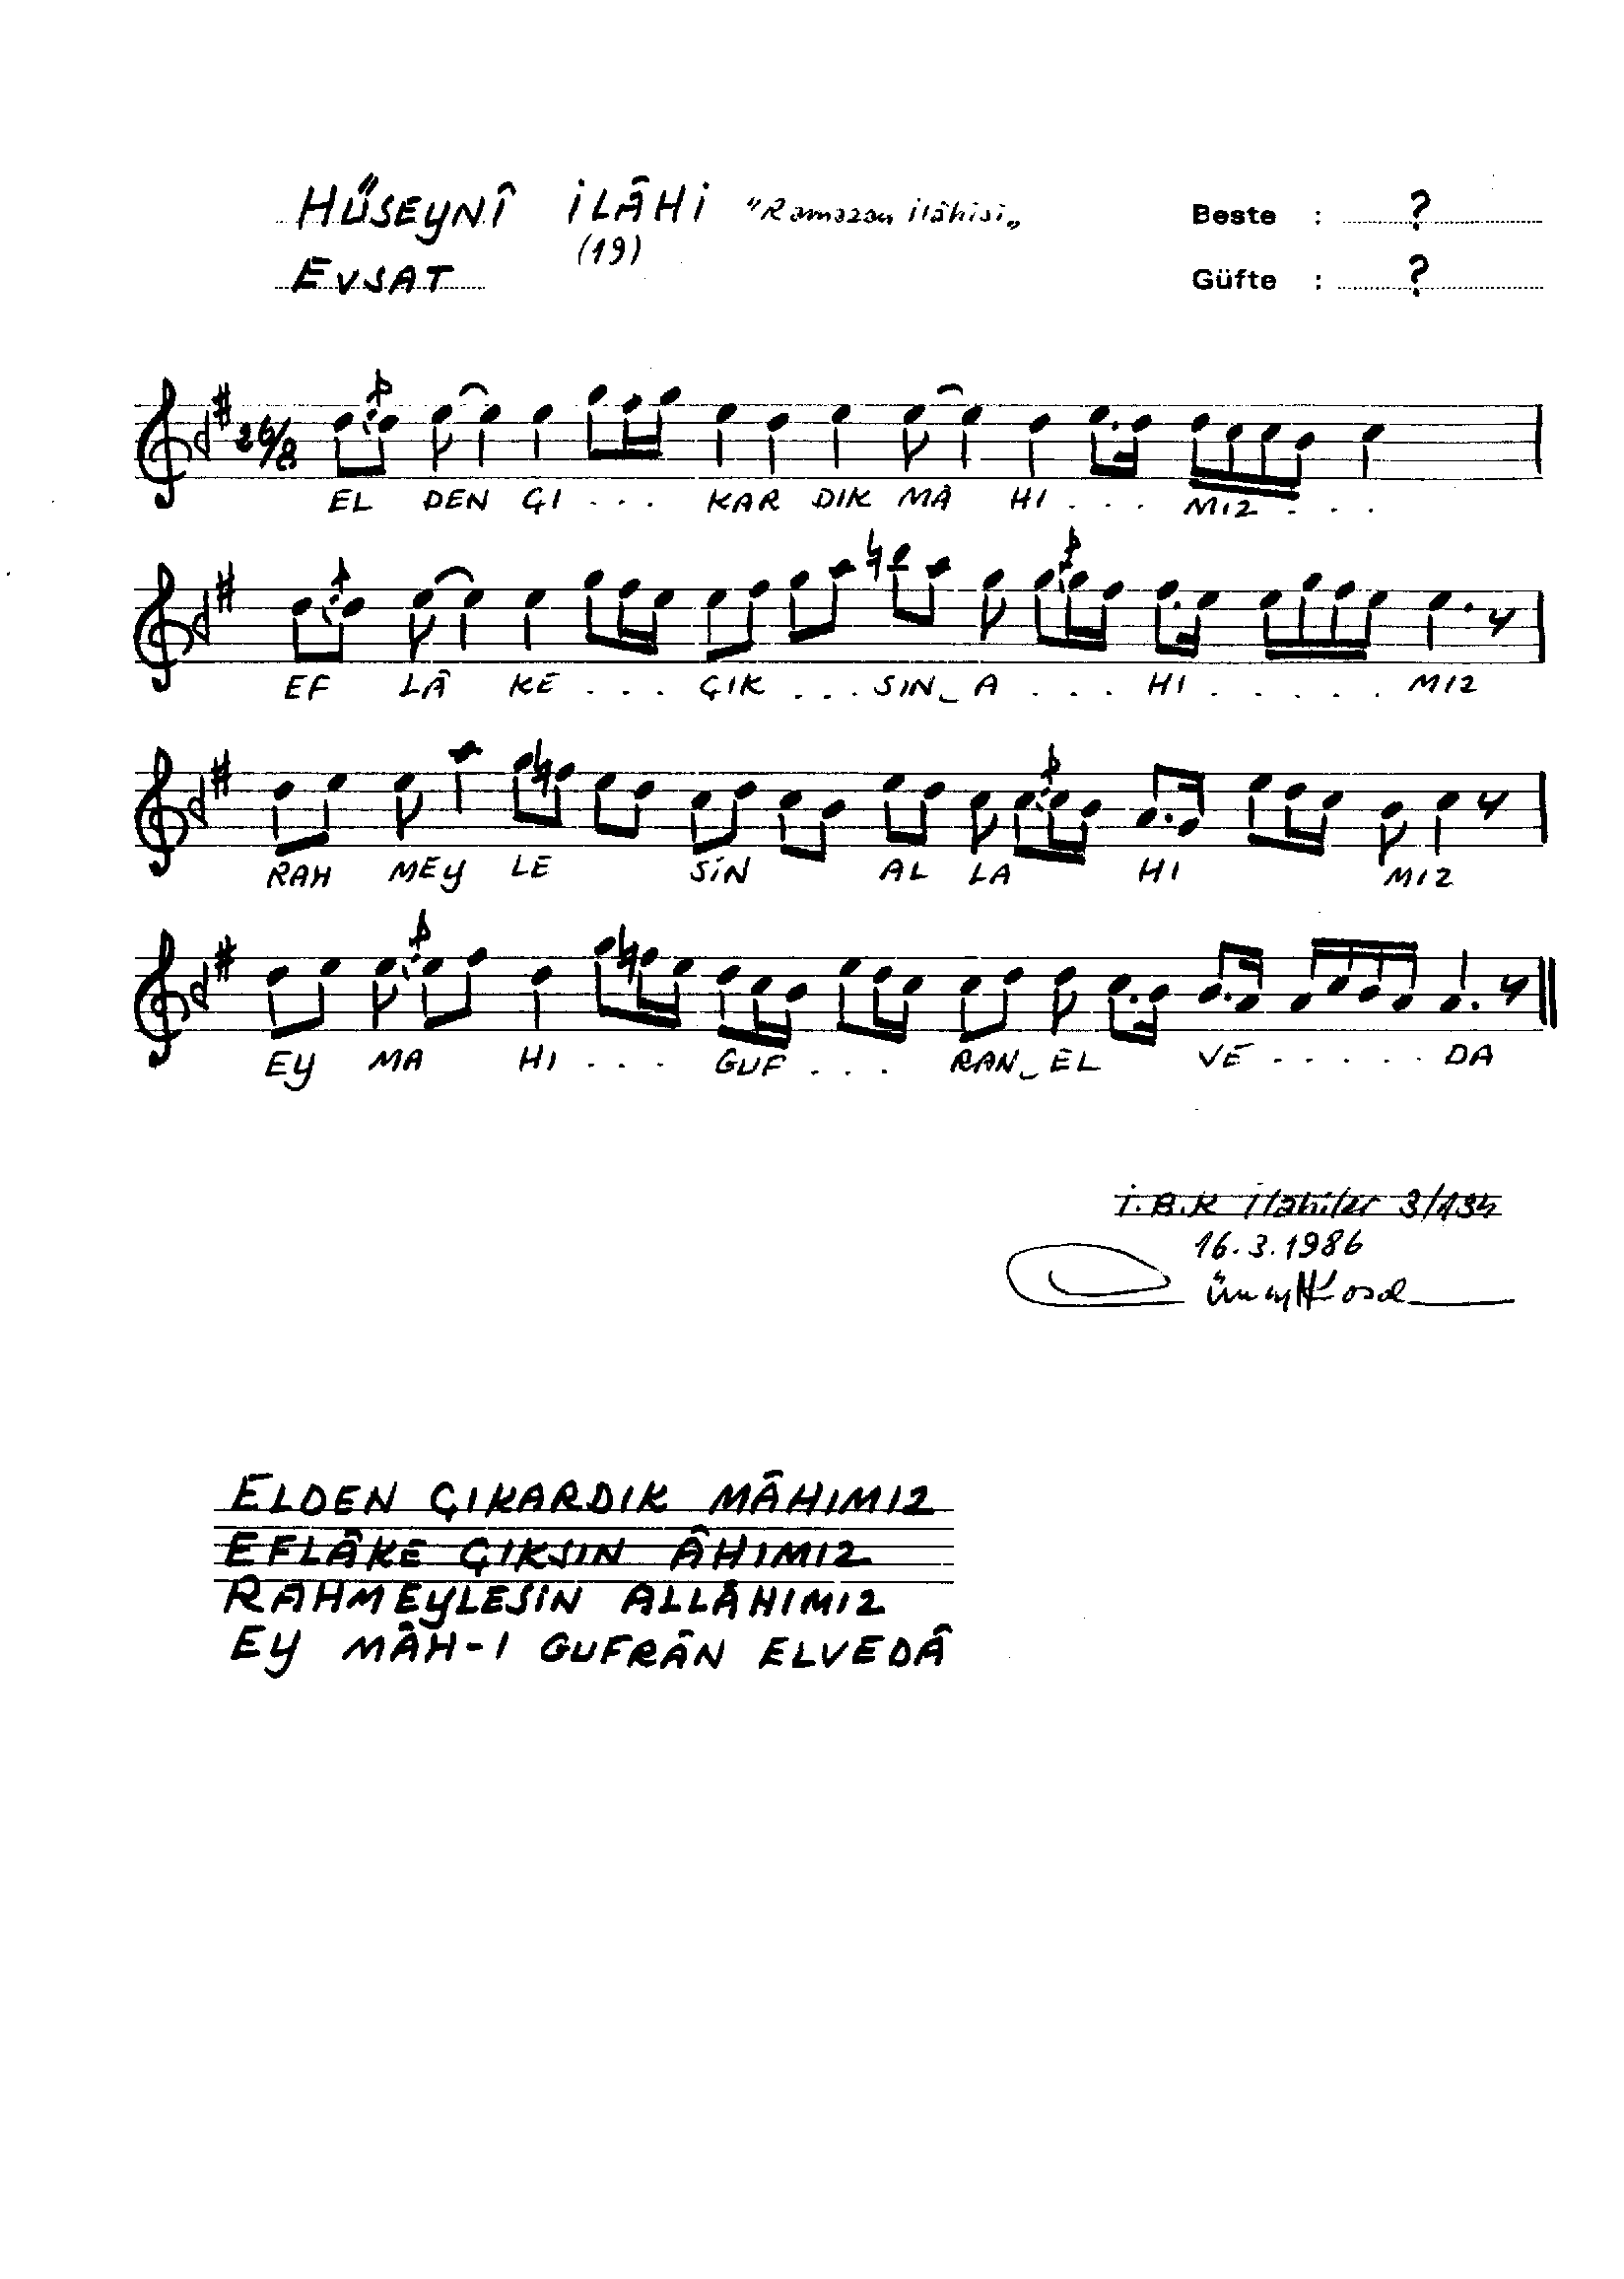 HÜSEYNÎ İLÂHİ "Ramazan ilâhisi" Beste : ?
(19)
EVSAT Güfte : ?
26/8
EL DEN ÇI . . . KAR DIK MÂ HI . . . MIZ . . .
EF LÂ KE . . . ÇIK . . . SIN_A . . . HI . . . . . MIZ
RAH MEY LE SİN AL LA HI MIZ
EY MA HI . . . GUF . . . RAN_EL VE . . . . . DA
İ.B.K İlahiler
16.3.1986
ELDEN ÇIKARDIK MÂHIMIZ
EFLÂKE ÇIKSIN ÂHIMIZ
RAHMEYLESİN ALLÂHIMIZ
EY MÂH-I GUFRÂN ELVEDÂ